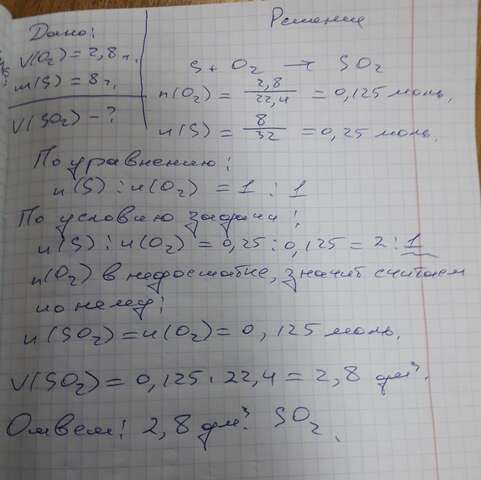 Дано:
V(O₂) = 2,8 л.
m(S) = 8 г.
V(SO₂) - ?
Решение
S + O₂ → SO₂
n(O₂) = 2,8/22,4 = 0,125 моль.
n(S) = 8/32 = 0,25 моль.
По уравнению:
n(S) : n(O₂) = 1 : 1
По условию задачи:
n(S) : n(O₂) = 0,25 : 0,125 = 2 : 1
n(O₂) в недостатке, значит считаем
по нему:
n(SO₂) = n(O₂) = 0,125 моль.
V(SO₂) = 0,125 · 22,4 = 2,8 дм³.
Ответ: 2,8 дм³ SO₂.